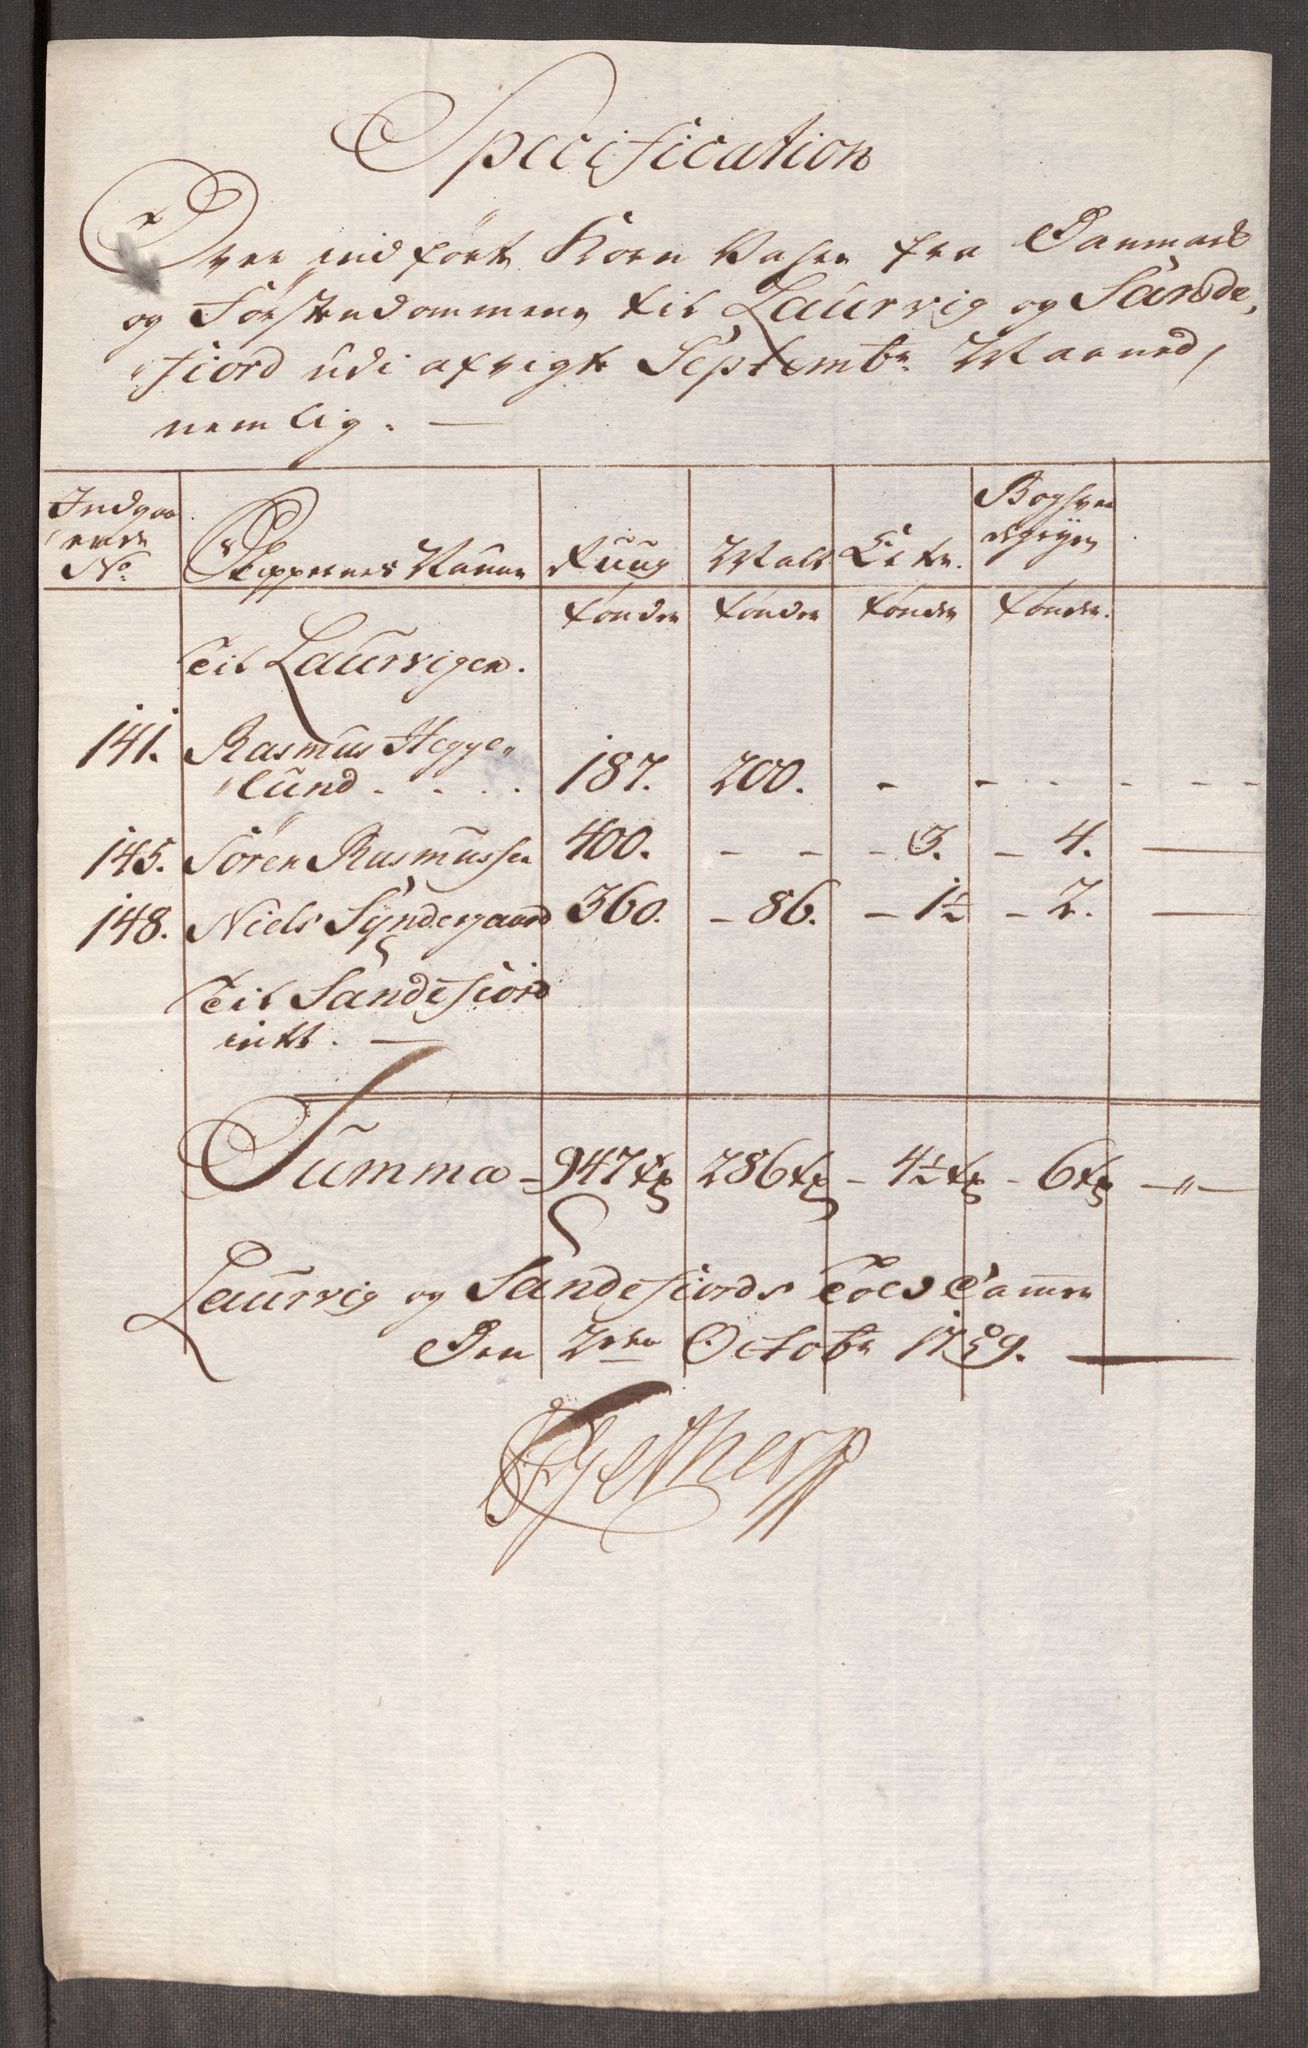 Specification
Over indført Korn Vahre fra Danmark
og Førstendommene til Laurvig og Sande„
fiord udi afvigte Septembr Maaned,
nemlig. —
Indgaa„
ende
No
Skippernes Nafne
Ruug
Malt
Erter.
Boghvee
degryn
tønder tønder tønder tønder.
Til Laurvigen.
141. Rasmus Hegge„
lund . . . . 187. 200. - - - - - -
145. Sören Rasmussen 400. - - - 3. - 4. —
148. Niels Syndergaard 360. - 86. - 1½ - 2. —
Til Sandefiord
intet. —
Summa - 947 tr 286 tr - 4½ tr - 6 tr —„—
Laurvig og Sandefiords Told Camer
Den 2den Octobr 1759. —